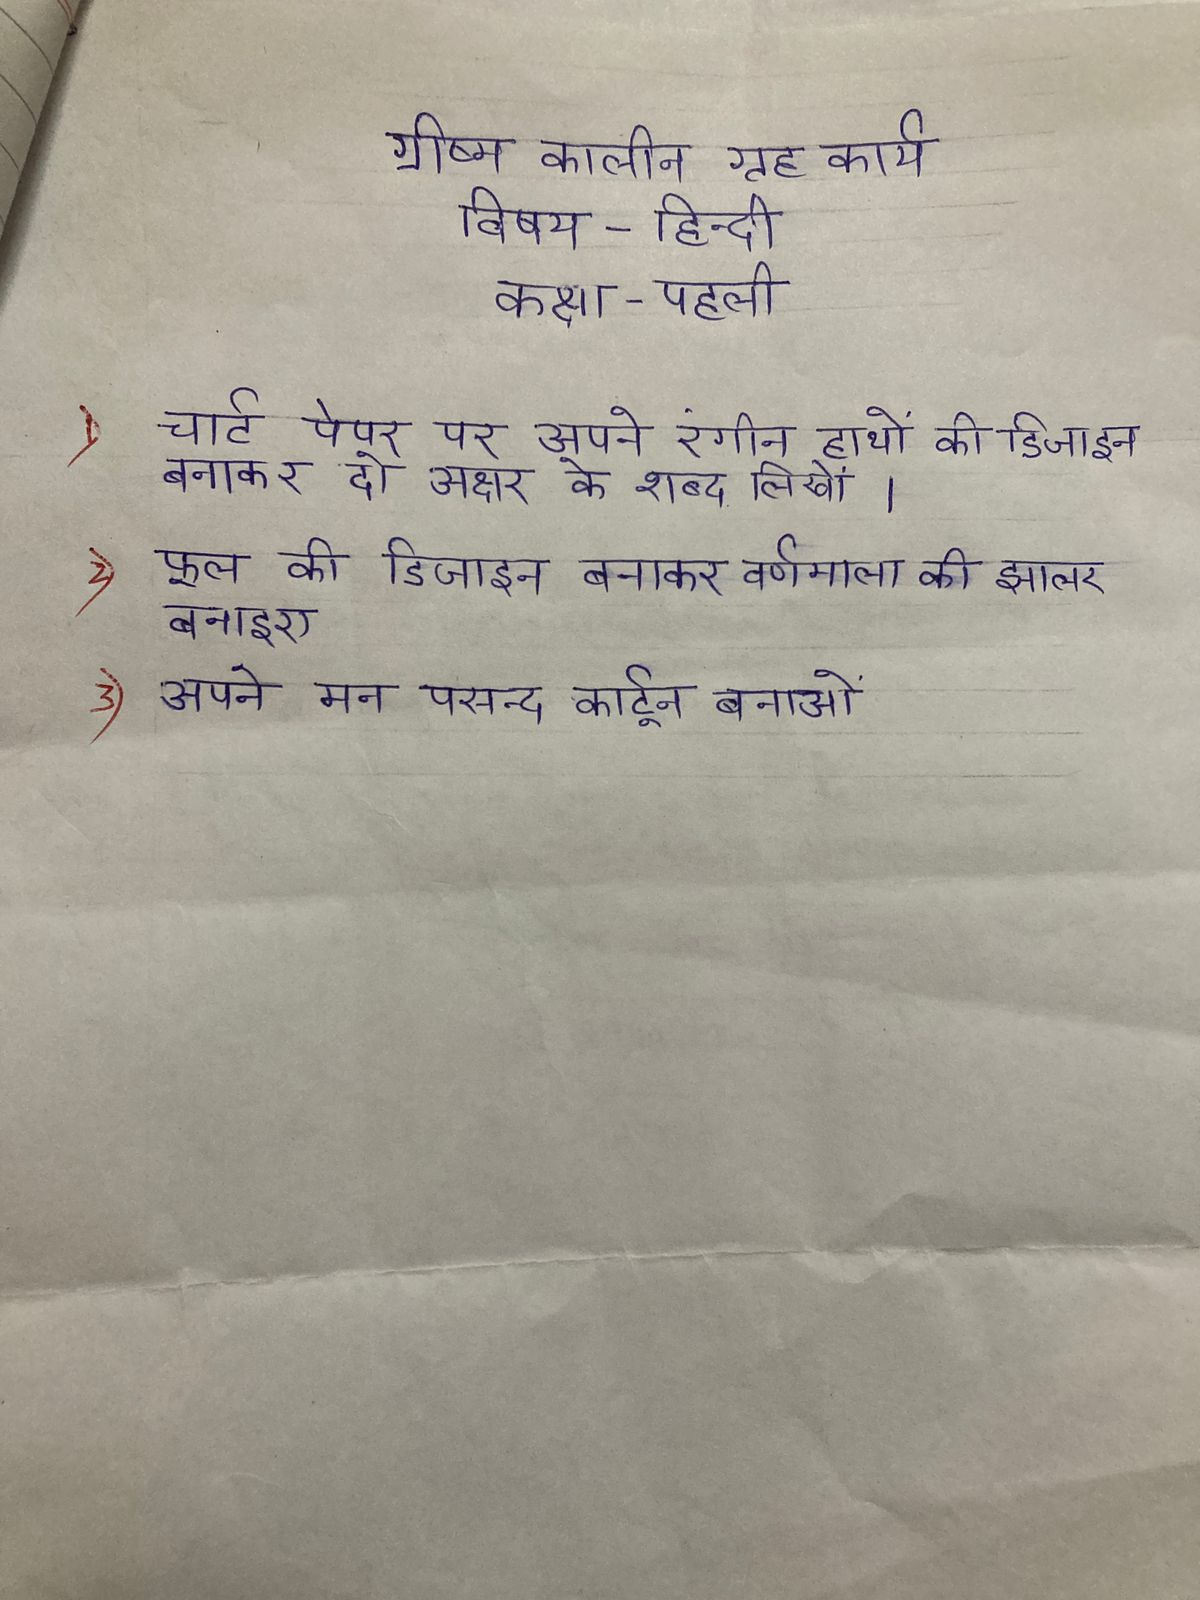 ग्रीष्म कालीन गृह कार्य
विषय - हिन्दी
कक्षा - पहली
1) चार्ट पेपर पर अपने रंगीन हाथों की डिजाइन
बनाकर दो अक्षर के शब्द लिखों ।
2) फूल की डिजाइन बनाकर वर्णमाला की झालर
बनाइए
3) अपने मन पसन्द कार्टून बनाओं